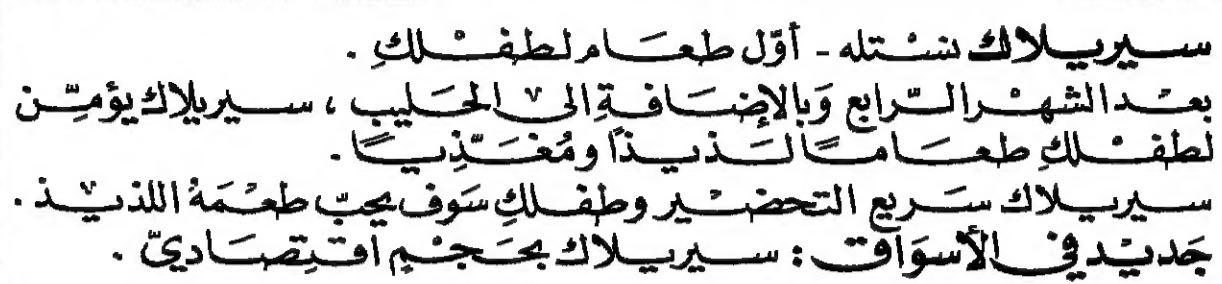 سيريلاك نستله - أوّل طعام لطفلكِ .
بعد الشهر الرّابع وَبالإضافةِ إلى الحَليب ، سيريلاك يؤمّن
لطفلكِ طعامًا لذيذًا ومُغَذِّيًا .
سيريلاك سَريع التحضير وطفلكِ سَوف يحبّ طعْمَهُ اللذيذ .
جَديد في الأسوَاق : سيريلاك بحَجْمٍ اقتِصَاديّ .